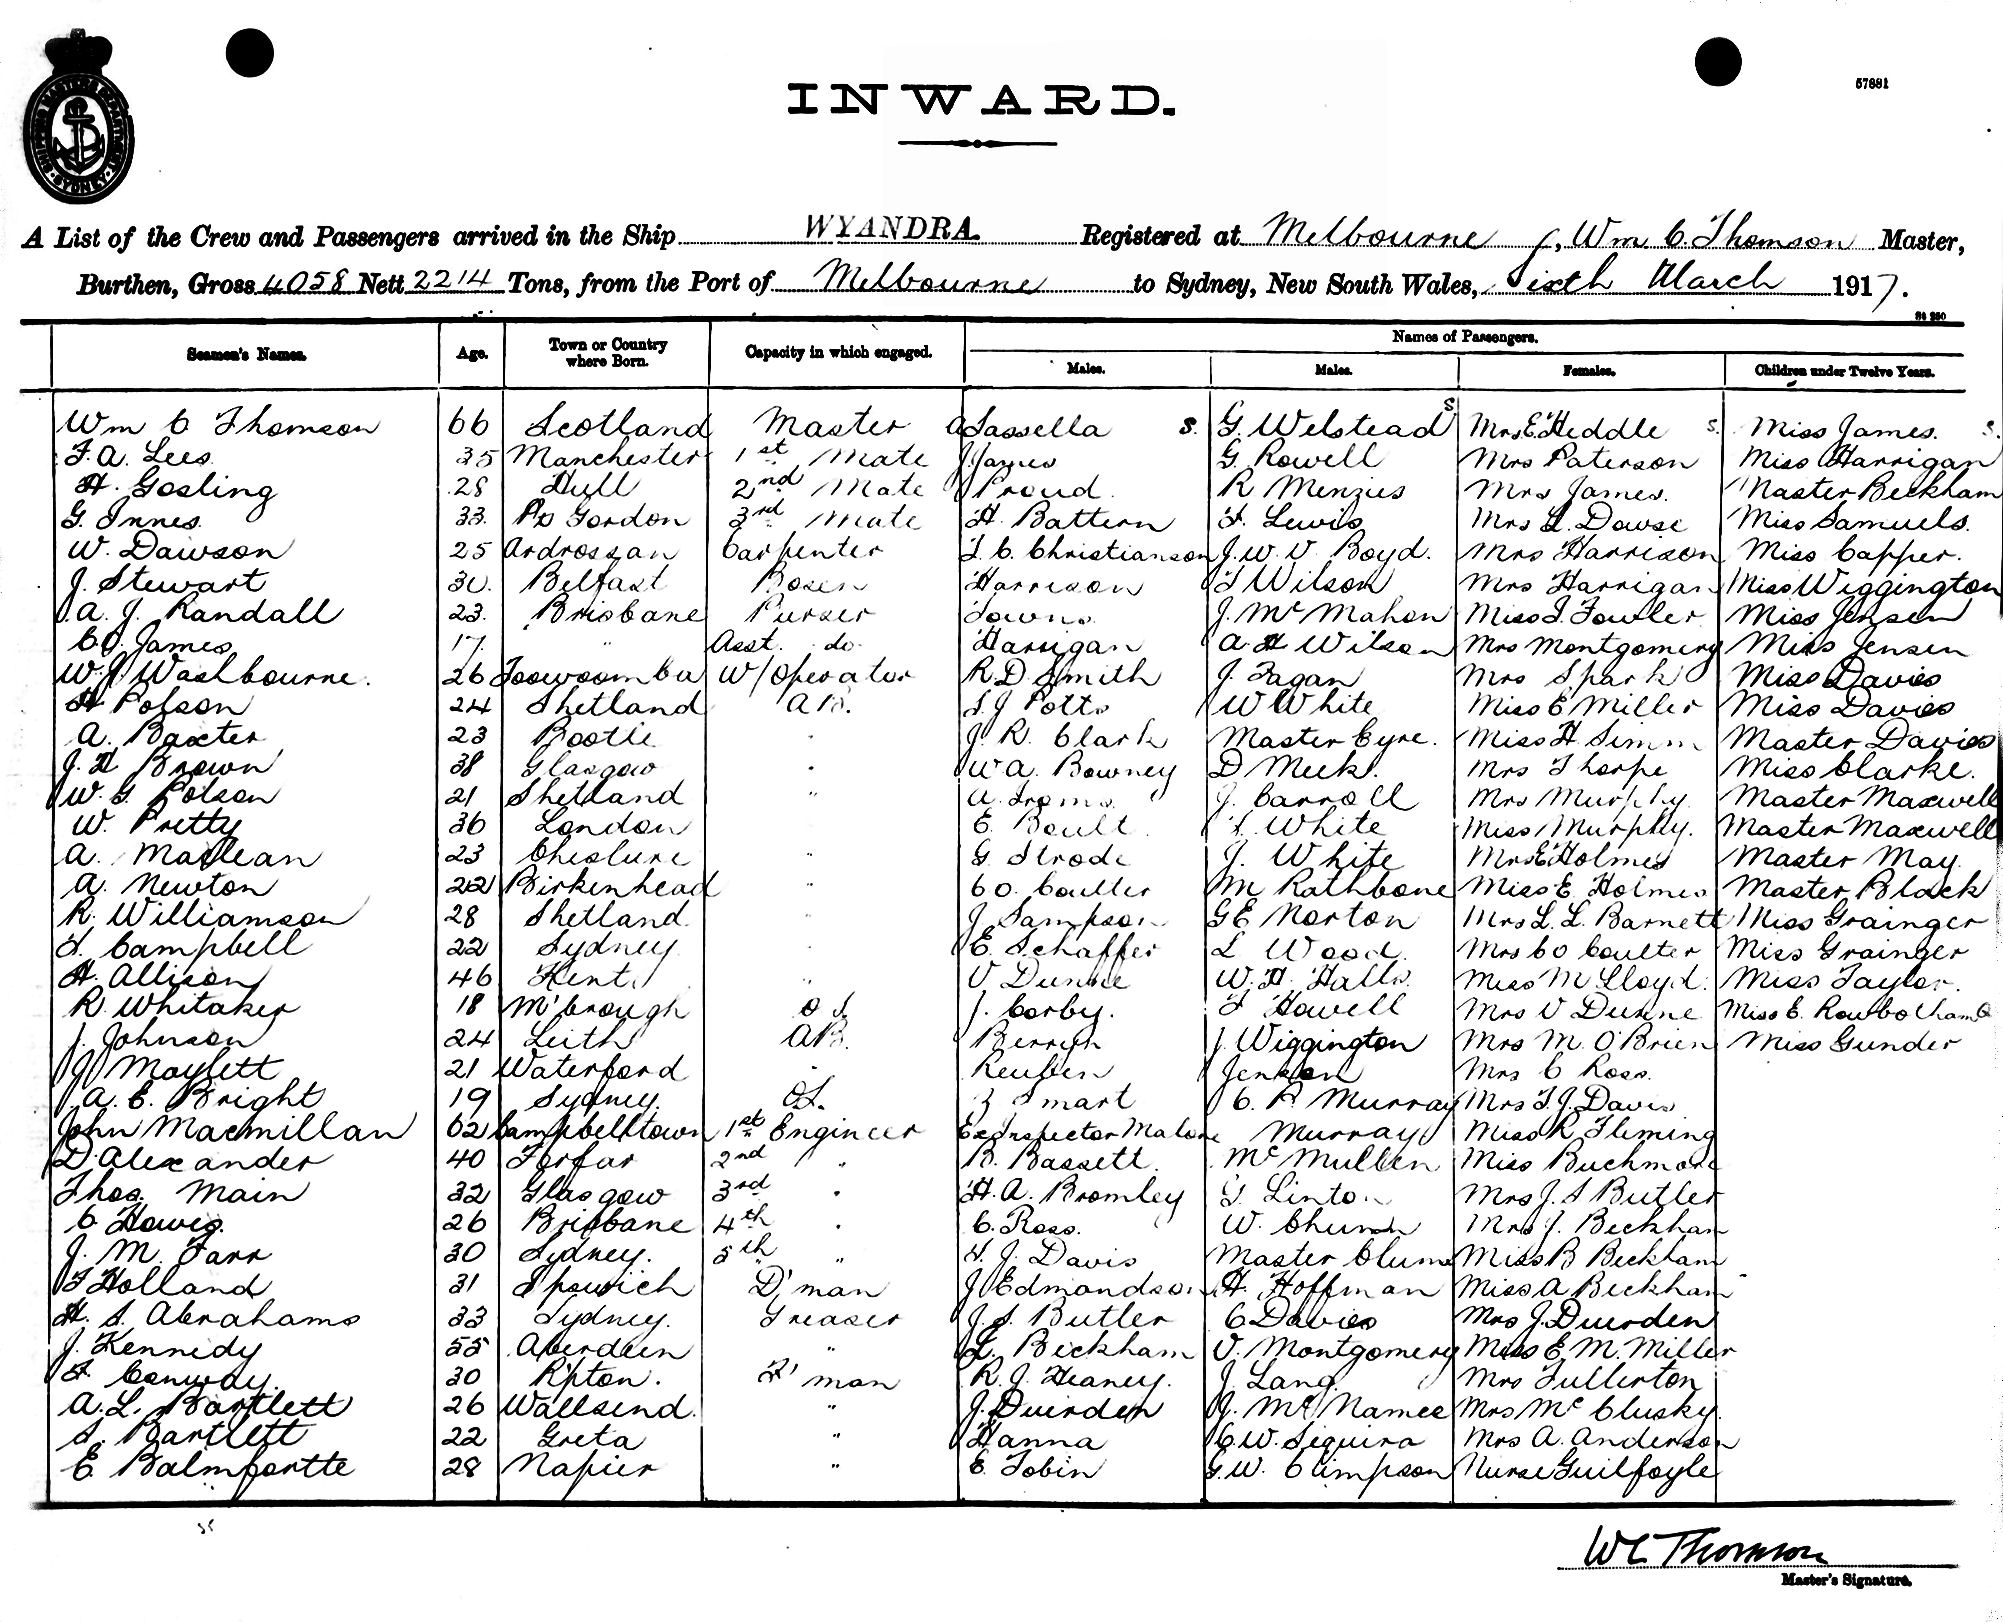 57881
INWARD.
SHIPPING MASTER'S DEPARTMENT · SYDNEY ·
A List of the Crew and Passengers arrived in the Ship WYANDRA. Registered at Melbourne , Wm C. Thomson Master,
Burthen, Gross 4058 Nett 2214 Tons, from the Port of Melbourne to Sydney, New South Wales, Sixth March 1917.
St 250
Seamen's Names. Age. Town or Country where Born. Capacity in which engaged. Names of Passengers.
Males. Males. Females. Children under Twelve Years.
Wm C Thomson 66 Scotland Master Sassella s. G. Welstead s Mrs E Heddle s. Miss James. s.
F. A. Lees 35 Manchester 1st Mate J. James G. Rowell Mrs Paterson Miss Harrigan
H. Gosling 28 Hull 2nd Mate Proud. R Menzies Mrs James. Master Beckham
G. Innes. 33. Pt Gordon 3rd Mate H. Battern F. Lewis Mrs L. Dowse Miss Samuels.
W. Dawson 25 Ardrossan Carpenter T. C. Christianson J. W. V. Boyd. Mrs Harrison Miss Capper.
J. Stewart 30. Belfast Bosen Harrison T Wilson Mrs Harrigan Miss Wiggington
A. J. Randall 23. Brisbane Purser Towns. J. McMahon Miss I. Fowler Miss Jensen
C O. James 17. " Asst. do. Harrigan A H Wilson Mrs Montgomery Miss Jensen
W. J. Washbourne. 26 Toowoomba W/Operator R. D. Smith J. Fagan Mrs Spark Miss Davies
H Polson 24 Shetland A B. S. J Potts W White Miss E Miller Miss Davies
A. Baxter 23 Bootle " J. R. Clark Master Eyre. Miss H Simm Master Davies
J. H Brown 38 Glasgow " W A. Bowney D Meek. Mrs Thorpe Miss Clarke.
W. G. Polson 21 Shetland " A. Troms. J. Carroll Mrs Murphy. Master Maxwell
W. Pretty 36 London E. Boult. T. White Miss Murphy. Master Maxwell
A. MacLean 23 Cheshire " G. Strode J. White Mrs E Holmes Master May.
A. Newton 22 Birkenhead " C O. Coulter M Rathbone Miss E Holmes Master Black
R. Williamson 28 Shetland. " J. Sampson G E Norton Mrs L. L. Barnett Miss Grainger
T. Campbell 22 Sydney " E. Schaffer L Wood. Mrs C O Coulter Miss Grainger
H. Allison 46 Kent. " V Dunne W. H. Halls. Miss M Lloyd. Miss Taylor.
R. Whitaker 18 M'brough O S. J. Corby. F Howell Mrs V Dunne Miss E. Rowbotham
J. Johnson 24 Leith AB. J. Wiggington Mrs M. O'Brien Miss Gunder
J Maylett 21 Waterford " Reuben Jenkson Mrs C Ross.
A. E. Bright 19 Sydney. OS. Smart C. P. Murray Mrs T. J. Davis
John Macmillan 62 Campbelltown 1st Engineer Ex Inspector Malone Murray Miss R Fleming
D. Alexander 40 Forfar 2nd " B. Bassett. McMullen Miss Buchmore
Thos. Main 32 Glasgow 3rd " H. A. Bromley G. Linton Mrs J. S Butler
C Howes. 26 Brisbane 4th " C. Ross. W. Church Mrs J. Beckham
J. M. Farr 30 Sydney. 5th " T. J. Davis Master Clum Miss B Beckham
T Holland 31 Ipswich D'man J Edmondson H. Hoffman Miss A Beckham
H. S. Abrahams 33 Sydney. Greaser J. S. Butler C Davies Mrs J. Duerden
J. Kennedy 55 Aberdeen " L. Beckham V. Montgomery Miss E. M. Miller
F. Conway. 30 R'pton. F'man R. J. Heaney. J. Lang. Mrs Fullerton
A. L. Bartlett 26 Wallsend. " J. Duerden J. McNamee Mrs McClusky.
S. Bartlett 22 Greta " Hanna C. W. Sequira Mrs A. Anderson
E. Balmfortte 28 Napier " E. Tobin G. W. Climpson Nurse Guilfoyle
WC Thomson
Master's Signature.